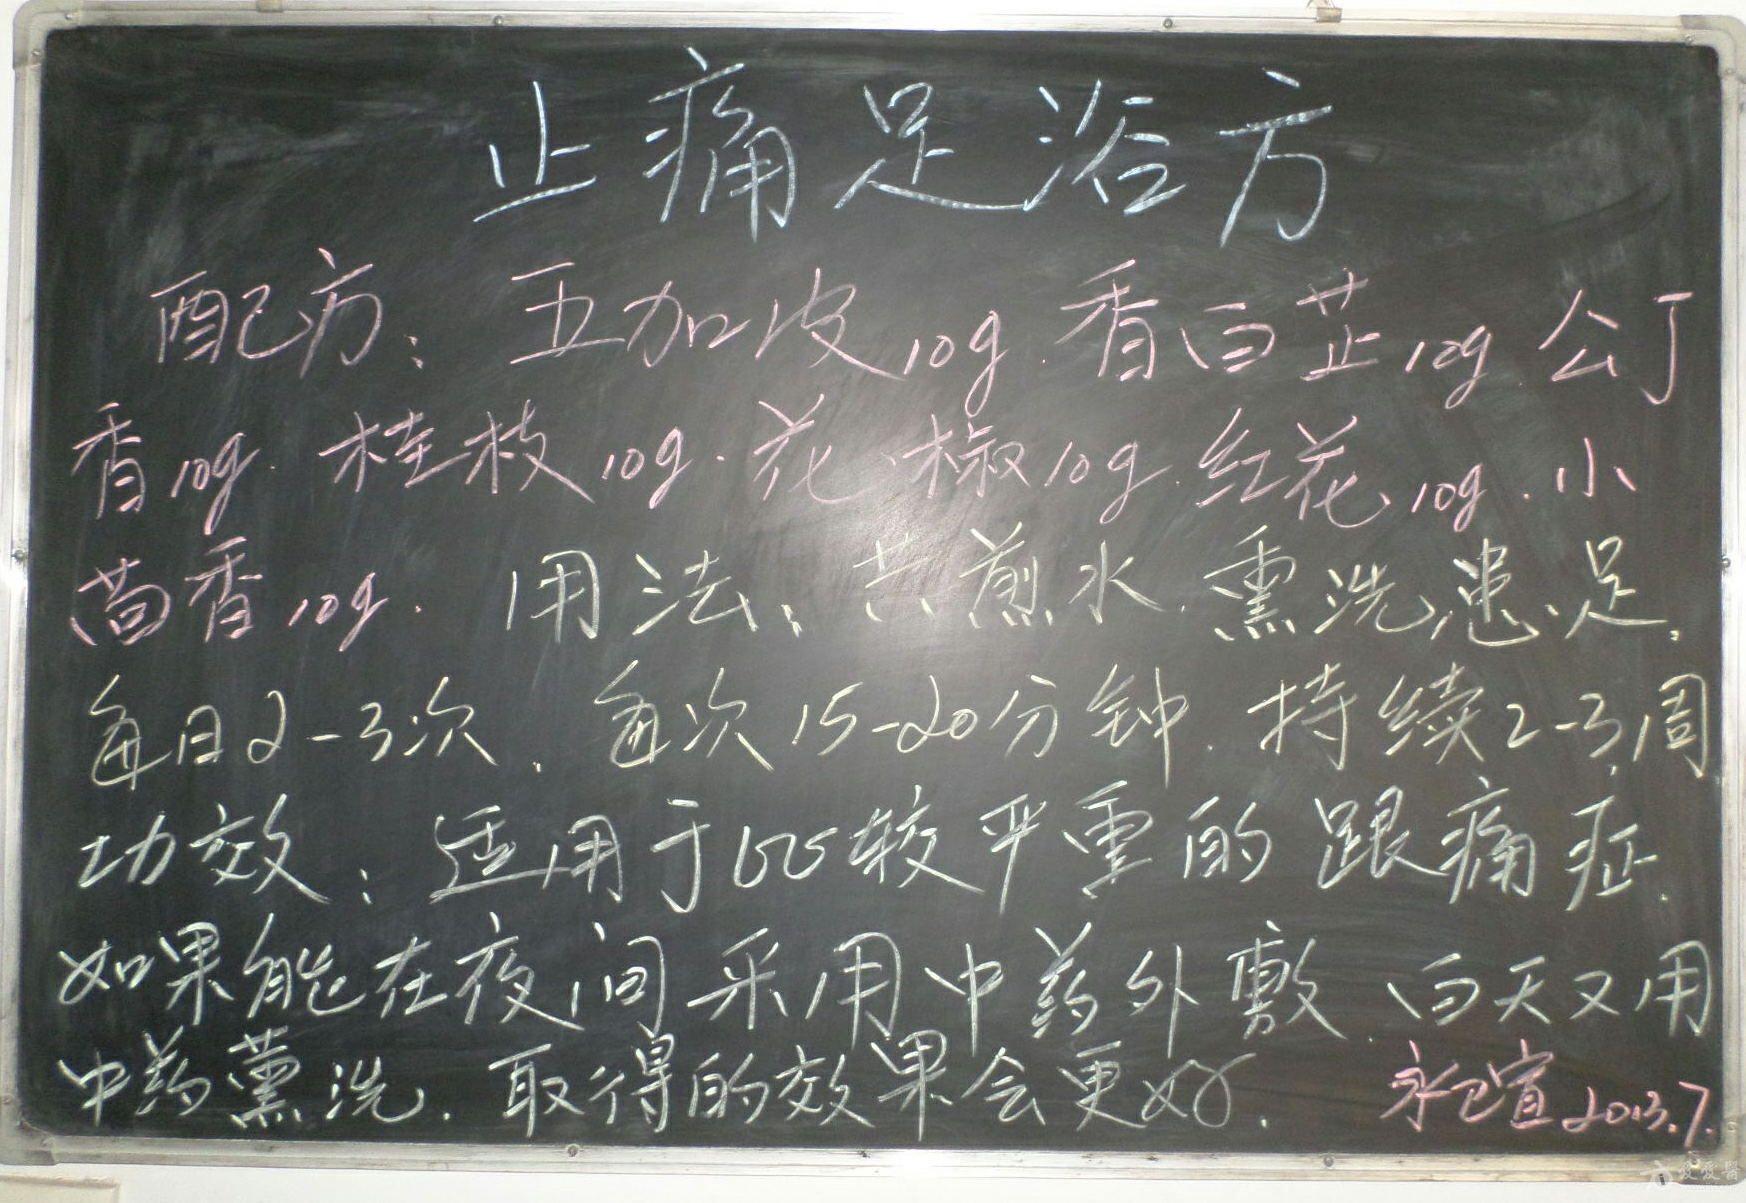 止痛足浴方
配方：五加皮10g.香白芷10g.公丁
香10g.桂枝10g.花椒10g.红花10g.小
茴香10g.用法：共煎水.熏洗患足.
每日2-3次.每次15-20分钟.持续2-3周
功效：适用于比较严重的跟痛症.
如果能在夜间采用中药外敷.白天又用
中药薰洗.取得的效果会更好.永卫宣2013.7.
爱爱医